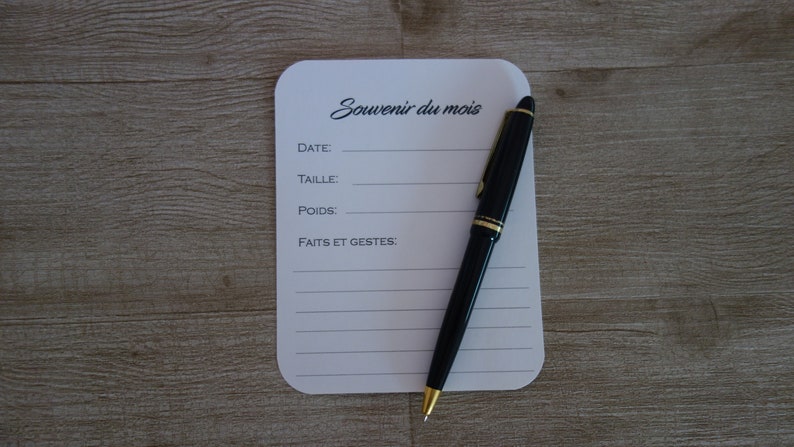 Souvenir du mois
Date:
Taille:
Poids:
Faits et gestes: